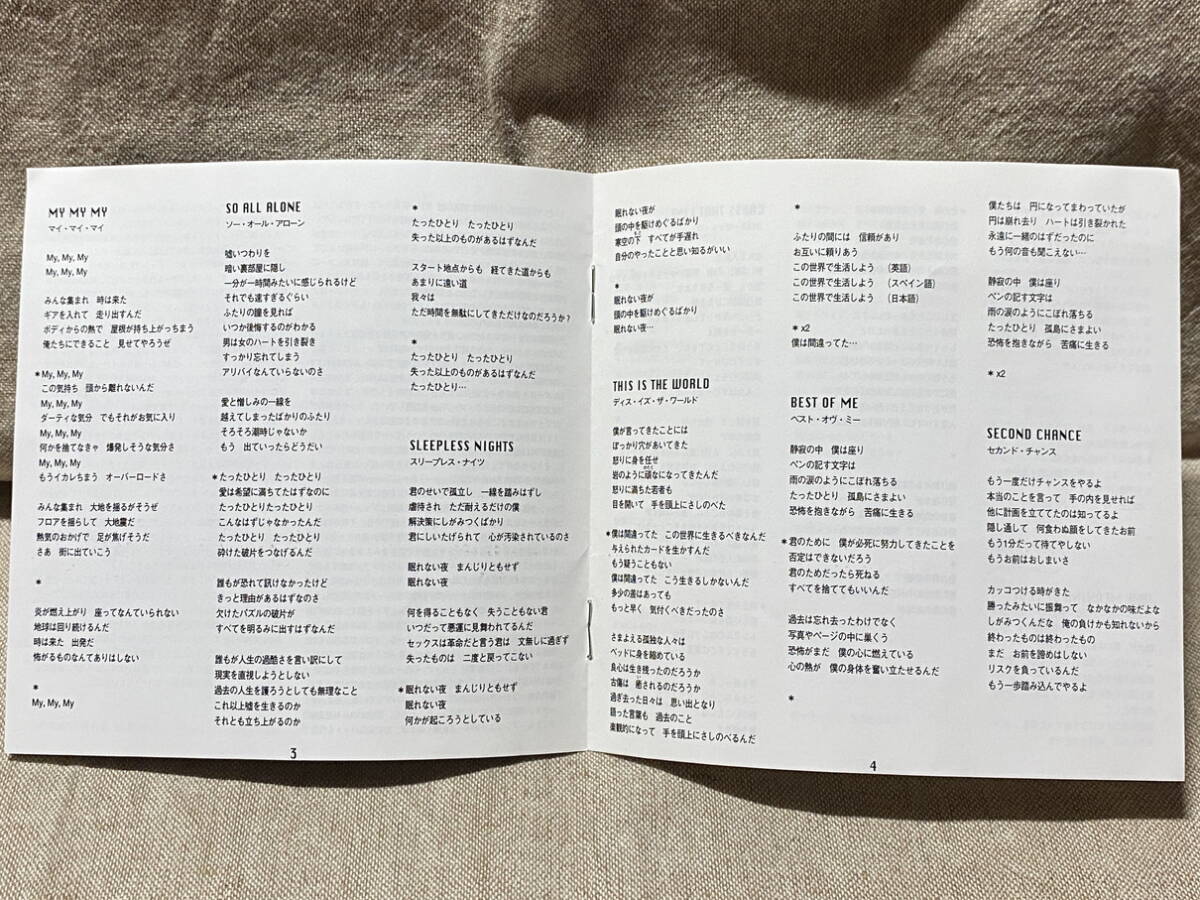 MY MY MY
マイ・マイ・マイ
My, My, My
My, My, My
みんな集まれ 時は来た
ギアを入れて 走り出すんだ
ボディからの熱で 屋根が持ち上がっちまう
俺たちにできること 見せてやろうぜ
*My, My, My
この気持ち 頭から離れないんだ
My, My, My
ダーティな気分 でもそれがお気に入り
My, My, My
何かを捨てなきゃ 爆発しそうな気分さ
My, My, My
もうイカレちまう オーバーロードさ
みんな集まれ 大地を揺るがそうぜ
フロアを揺らして 大地震だ
熱気のおかげで 足が焦げそうだ
さあ 街に出ていこう
*
炎が燃え上がり 座ってなんていられない
地球は回り続けるんだ
時は来た 出発だ
怖がるものなんてありはしない
*
My, My, My
SO ALL ALONE
ソー・オール・アローン
嘘いつわりを
暗い裏部屋に隠し
一分が一時間みたいに感じられるけど
それでも速すぎるぐらい
ふたりの瞳を見れば
いつか後悔するのがわかる
男は女のハートを引き裂き
すっかり忘れてしまう
アリバイなんていらないのさ
愛と憎しみの一線を
越えてしまったばかりのふたり
そろそろ潮時じゃないか
もう 出ていったらどうだい
*たったひとり たったひとり
愛は希望に満ちてたはずなのに
たったひとりたったひとり
こんなはずじゃなかったんだ
たったひとり たったひとり
砕けた破片をつなげるんだ
誰もが恐れて訊けなかったけど
きっと理由があるはずなのさ
欠けたパズルの破片が
すべてを明るみに出すはずなんだ
誰もが人生の過酷さを言い訳にして
現実を直視しようとしない
過去の人生を護ろうとしても無理なこと
これ以上嘘を生きるのか
それとも立ち上がるのか
*
たったひとり たったひとり
失った以上のものがあるはずなんだ
スタート地点からも 経てきた道からも
あまりに遠い道
我々は
ただ時間を無駄にしてきただけなのだろうか?
*
たったひとり たったひとり
失った以上のものがあるはずなんだ
たったひとり…
SLEEPLESS NIGHTS
スリープレス・ナイツ
君のせいで孤立し 一線を踏みはずし
虐待され ただ耐えるだけの僕
解決策にしがみつくばかり
君にしいたげられて 心が汚染されているのさ
眠れない夜 まんじりともせず
眠れない夜
何を得ることもなく 失うこともない君
いつだって悪運に見舞われてるんだ
セックスは革命だと言う君は 文無しに過ぎず
失ったものは 二度と戻ってこない
*眠れない夜 まんじりともせず
眠れない夜
何かが起ころうとしている
3
眠れない夜が
頭の中を駆けめぐるばかり
寒空の下 すべてが手遅れ
自分のやったことと思い知るがいい
*
眠れない夜が
頭の中を駆けめぐるばかり
眠れない夜…
THIS IS THE WORLD
ディス・イズ・ザ・ワールド
僕が言ってきたことには
ぽっかり穴があいてきた
怒りに身を任せ
岩のように頑なになってきたんだ
怒りに満ちた若者も
目を開いて 手を頭上にさしのべた
*僕は間違ってた この世界に生きるべきなんだ
与えられたカードを生かすんだ
もう疑うこともない
僕は間違ってた こう生きるしかないんだ
多少の差はあっても
もっと早く 気付くべきだったのさ
さまよえる孤独な人々は
ベッドに身を縮めている
良心は生き残ったのだろうか
古傷は 癒されるのだろうか
過ぎ去った日々は 思い出となり
語った言葉も 過去のこと
楽観的になって 手を頭上にさしのべるんだ
*
ふたりの間には 信頼があり
お互いに頼りあう
この世界で生活しよう (英語)
この世界で生活しよう (スペイン語)
この世界で生活しよう (日本語)
*x2
僕は間違ってた…
BEST OF ME
ベスト・オヴ・ミー
静寂の中 僕は座り
ペンの記す文字は
雨の涙のようにこぼれ落ちる
たったひとり 孤島にさまよい
恐怖を抱きながら 苦痛に生きる
*君のために 僕が必死に努力してきたことを
否定はできないだろう
君のためだったら死ねる
すべてを捨ててもいいんだ
過去は忘れ去ったわけでなく
写真やページの中に巣くう
恐怖がまだ 僕の心に燃えている
心の熱が 僕の身体を奮い立たせるんだ
*
僕たちは 円になってまわっていたが
円は崩れ去り ハートは引き裂かれた
永遠に一緒のはずだったのに
もう何の音も聞こえない…
静寂の中 僕は座り
ペンの記す文字は
雨の涙のようにこぼれ落ちる
たったひとり 孤島にさまよい
恐怖を抱きながら 苦痛に生きる
*x2
SECOND CHANCE
セカンド・チャンス
もう一度だけチャンスをやるよ
本当のことを言って 手の内を見せれば
他に計画を立ててたのは知ってるよ
隠し通して 何食わぬ顔をしてきたお前
もう1分だって待てやしない
もうお前はおしまいさ
カッコつける時がきた
勝ったみたいに振舞って なかなかの味だよな
しがみつくんだな 俺の負けかも知れないから
終わったものは終わったもの
まだ お前を諦めはしない
リスクを負っているんだ
もう一歩踏み込んでやるよ
4